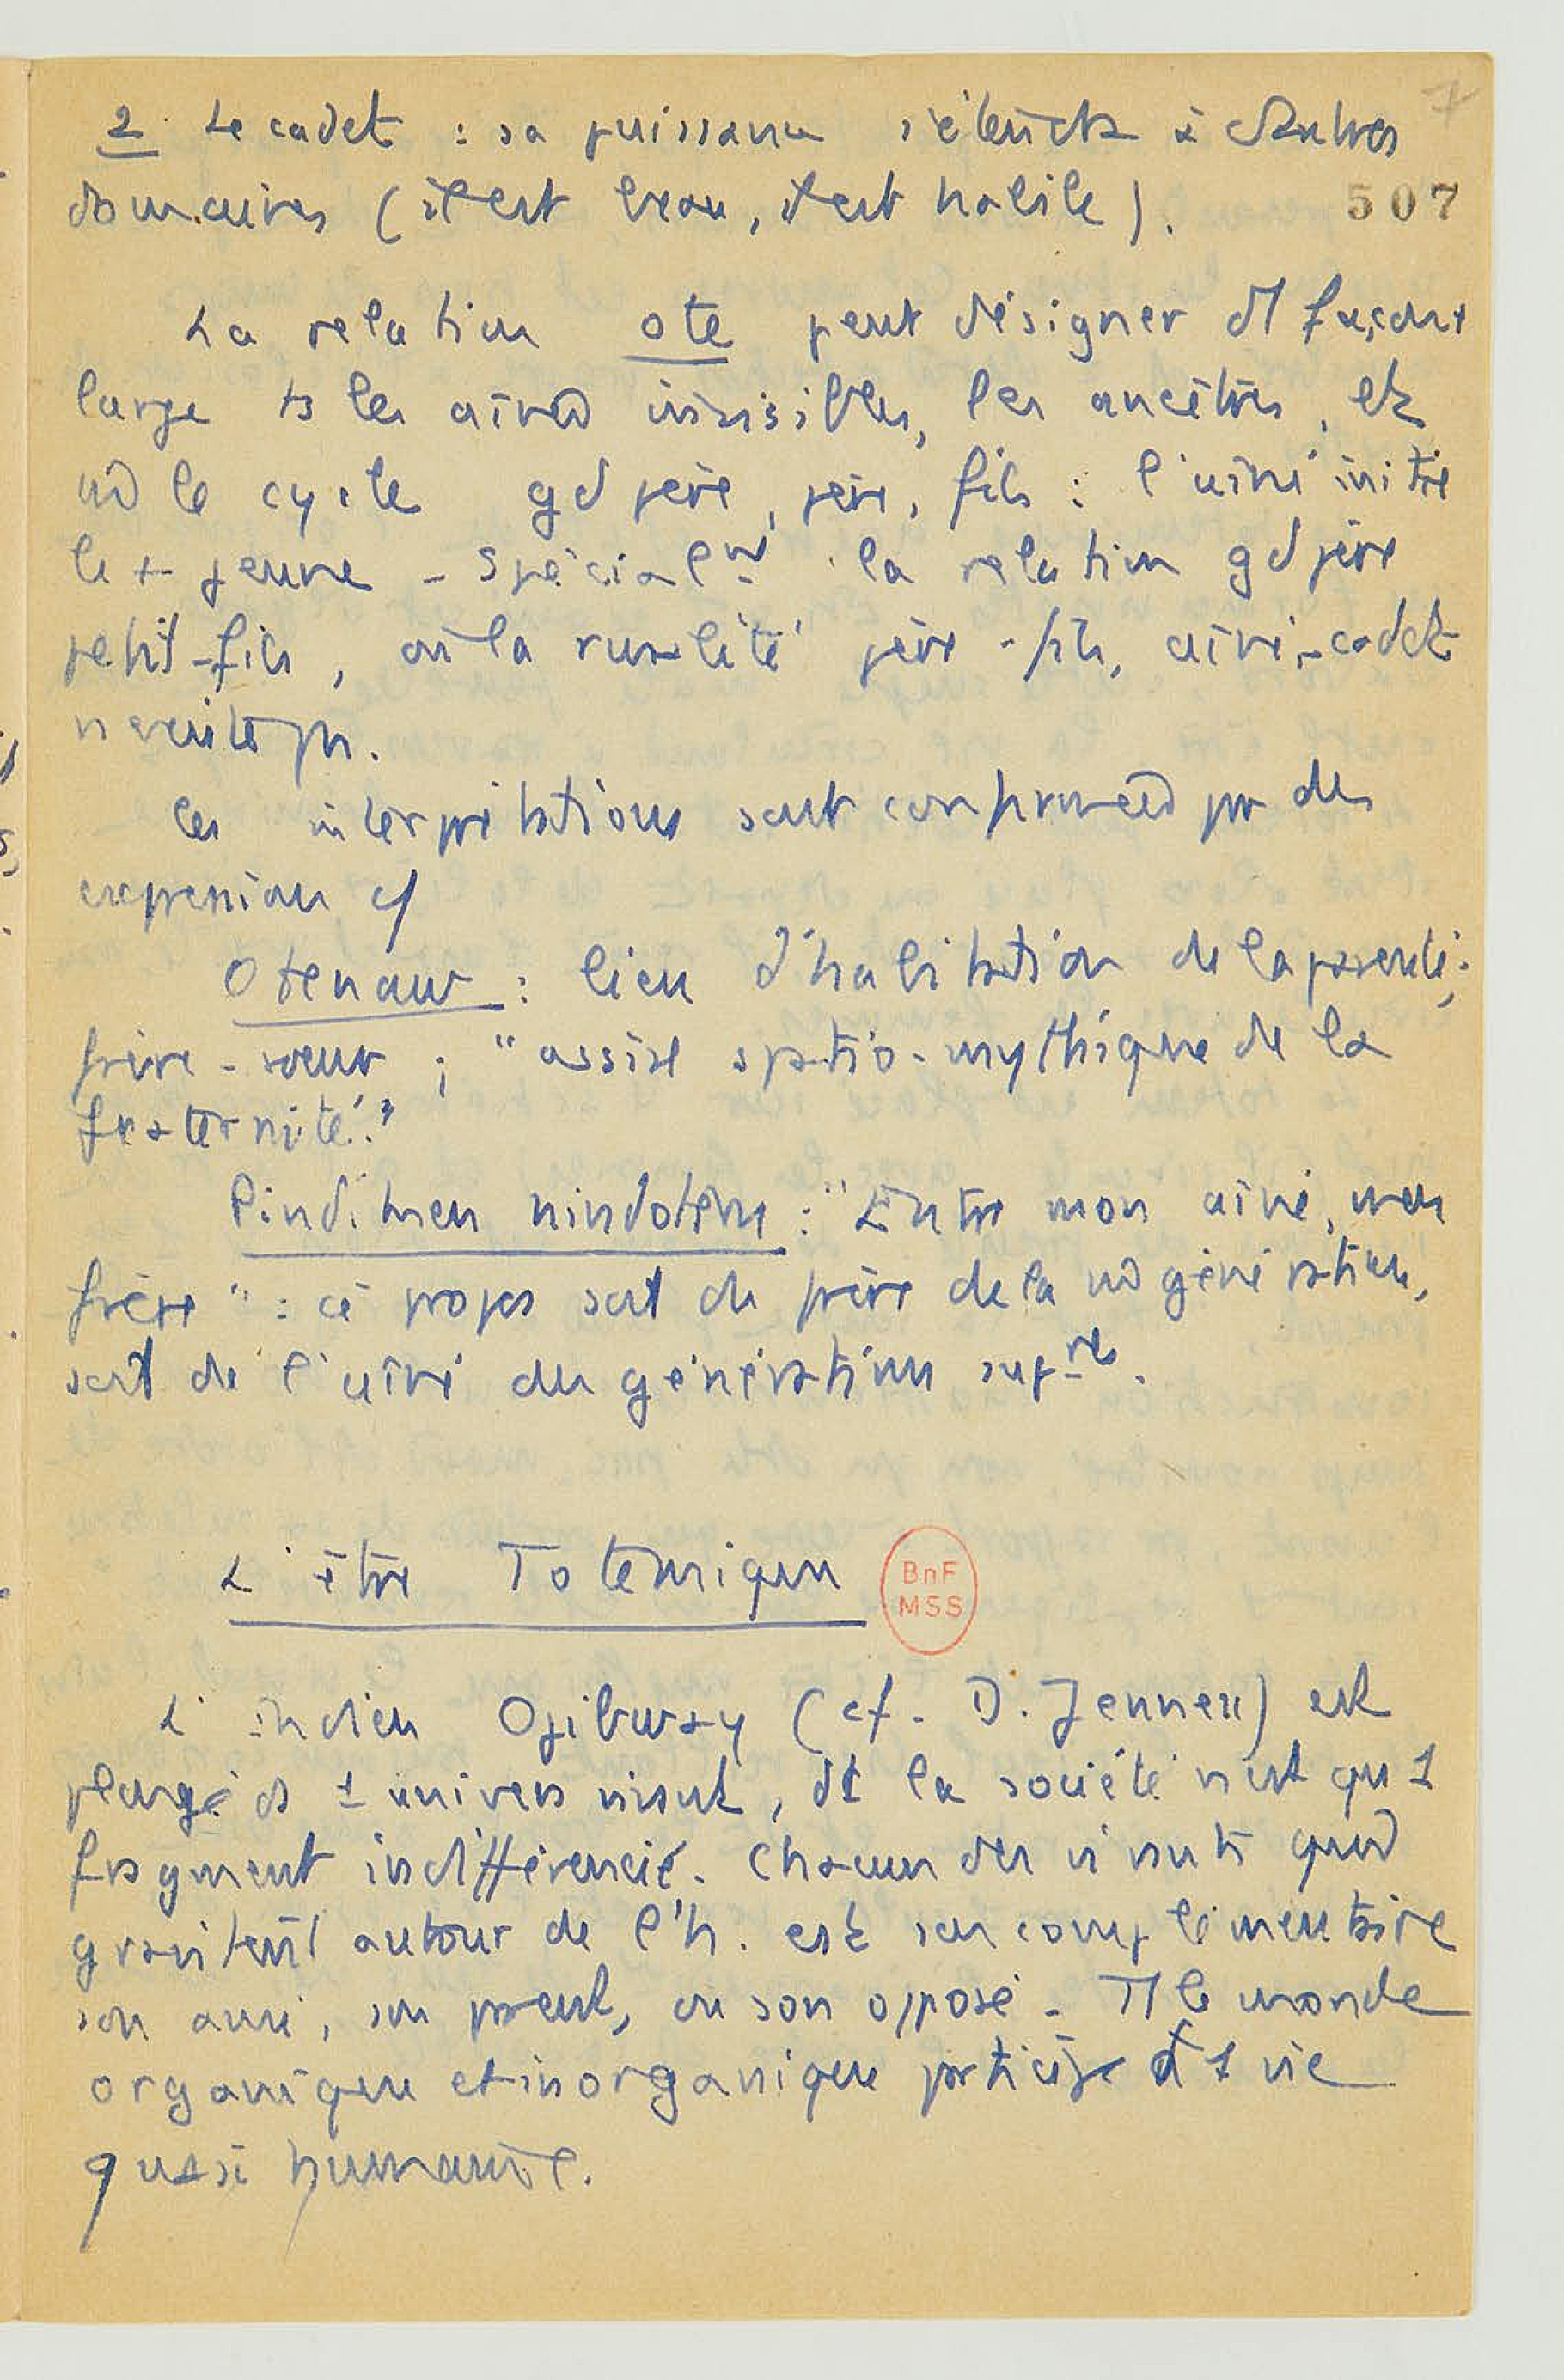 7
2. Le cadet : sa puissance s'étend à d'autres
domaines (il est beau, il est habile).
507
La relation ote peut désigner d1 façon
large ts les aînés invisibles, les ancêtres, et
le cycle gd père, père, fils : l'aîné initie
le + jeune - Spécialnt la relation gd père
petit-fils, où la rivalité père-fils, aîné-cadet
n'existe pas.
Ces interprétations sont confirmées par des
expressions cf
Otenaw : lieu d'habitation de la parenté,
frère-soeur ; "assise spatio-mythique de la
fraternité."
Pindiken nindotem : "Entre mon aîné, mon
frère" : ce propos soit du frère de la génération,
soit de l'aîné des générations supres.
L'être Totémique
BnF
MSS
L'indien Ojibway (cf. D. Jenness) est
plongé ds 1 univers vivant, dt la société n'est qu'1
fragment indifférencié. Chacun des vivants qui
gravitent autour de l'h. est son complémentaire
son ami, son parent, ou son opposé. Tt le monde
organique et inorganique participe d'1 vie
quasi humaine.